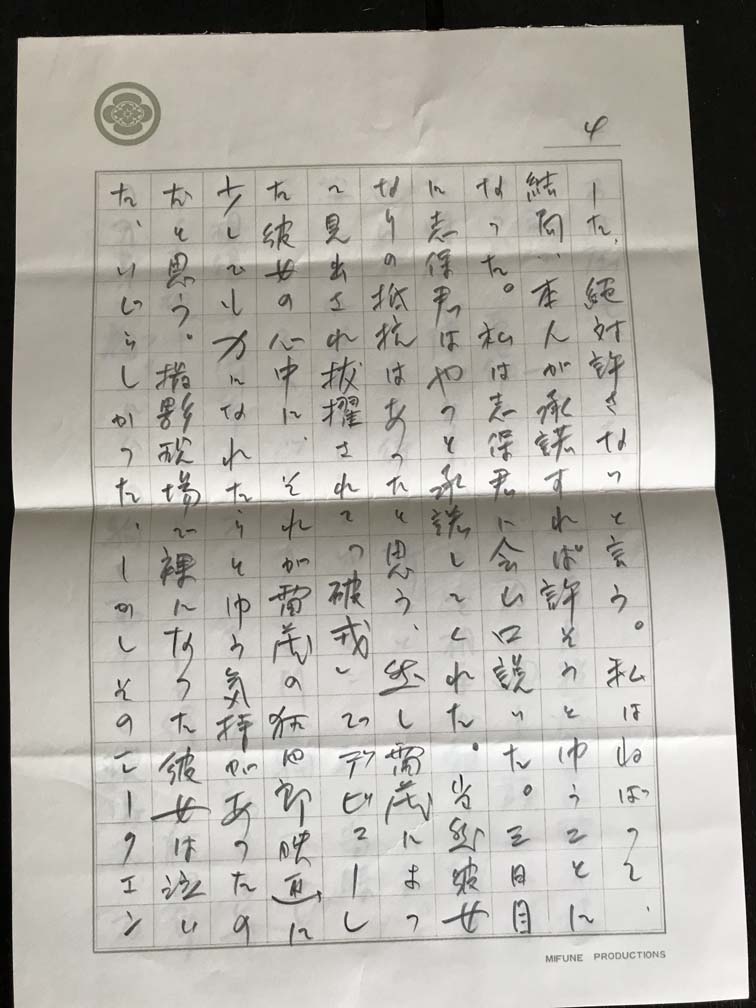 4
した、絶対許さないと言う。私はねばって、
結局…本人が承諾すれば許そうとゆうことに
なった。私は志保君に会い口説いた。三日目
に志保君はやっと承諾してくれた。当然彼女
なりの抵抗はあったと思う、然し雷蔵によっ
て見出され抜擢されて「破戒」でデビューし
た彼女の心中に、それが雷蔵の狂四郎映画に
少しでも力になれたらとゆう気持があったの
だと思う。撮影現場で裸になった彼女は泣い
た、いじらしかった、しかしそのシークエン
MIFUNE PRODUCTIONS